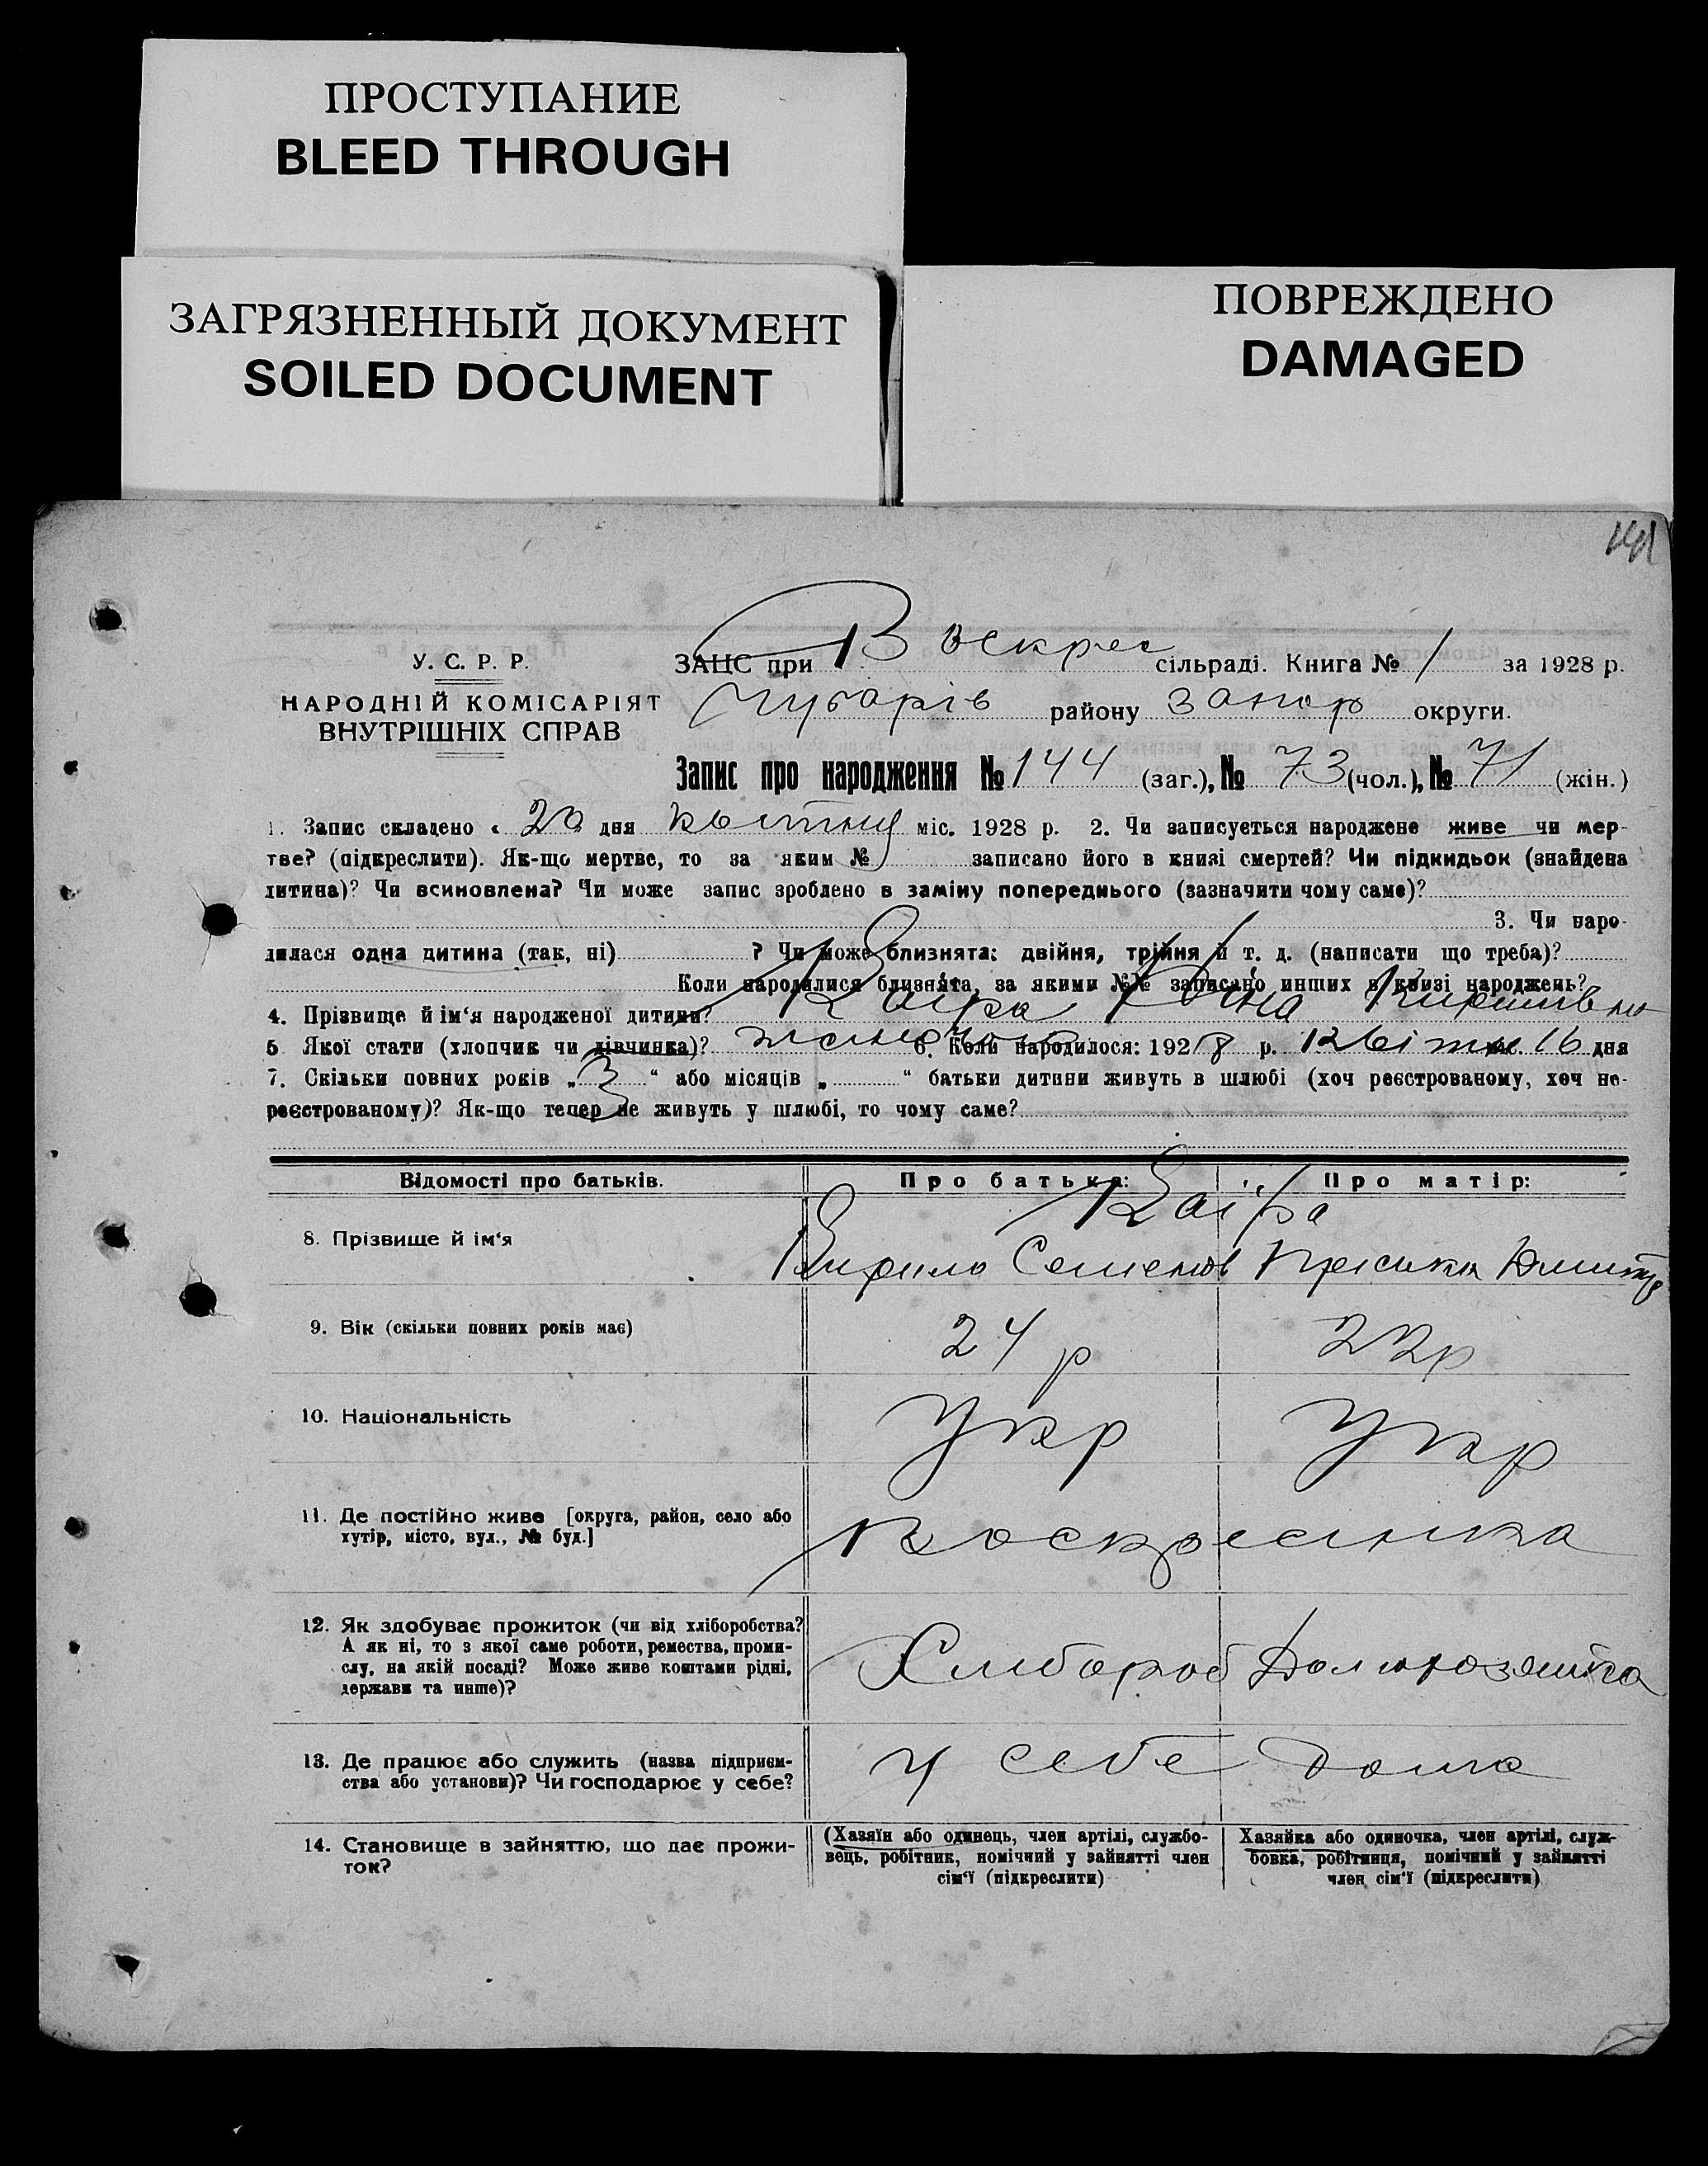 ПРОСТУПАНИЕ
BLEED THROUGH
ЗАГРЯЗНЕННЫЙ ДОКУМЕНТ
SOILED DOCUMENT
ПОВРЕЖДЕНО
DAMAGED
У. С. Р. Р.
НАРОДНІЙ КОМІСАРІЯТ
ВНУТРІШНІХ СПРАВ
ЗАЦС при Воскрес сільраді. Книга № 1 за 1928 р.
Чубарів району Запор округи.
Запис про народження № 144 (заг.), № 73 (чол.), № 71 (жін.)
1. Запис складено « 20 дня квітня міс. 1928 р. 2. Чи записується народжене живе чи мер-
тве? (підкреслити). Як-що мертве, то за яким № записано його в книзі смертей? Чи підкидьок (знайдена
дитина)? Чи всиновлена? Чи може запис зроблено в заміну попереднього (зазначити чому саме)?
3. Чи наро-
дилася одна дитина (так, ні) ? Чи може близнята: двійня, трійня й т. д. (написати що треба)?
Коли народилися близнята, за якими №№ записано инших в книзі народжень?
4. Прізвище й ім‘я народженої дитини? Каіра
5 Якої стати (хлопчик чи дівчинка)? жіноча 6. Коли народилося: 1928 р. Квітня 16 дня
7. Скільки повних років „ 3 “ або місяців „ “ батьки дитини живуть в шлюбі (хоч реєстрованому, хоч не-
реєстрованому)? Як-що тепер не живуть у шлюбі, то чому саме?
Відомості про батьків. Про батька: Про матір:
Каіра
8. Прізвище й ім‘я Кирило Семенов Пріська Дмитр
9. Вік (скільки повних років має) 24 р 22р
10. Національність Укр Укр
11. Де постійно живе [округа, район, село або
хутір, місто, вул., № буд.] Воскресінка
12. Як здобуває прожиток (чи від хліборобства?
А як ні, то з якої саме роботи, ремества, проми-
слу, на якій посаді? Може живе коштами рідні,
держави та инше)? Хлібороб
13. Де працює або служить (назва підприєм-
ства або установи)? Чи господарює у себе? У себе дома
14. Становище в зайняттю, що дає прожи-
ток?
(Хазяїн або одинець, член артілі, службо-
вець, робітник, помічний у зайнятті член
сім‘ї (підкреслити)
Хазяйка або одиночка, член артілі, служ-
бовка, робітниця, помічний у зайнятті
член сім‘ї (підкреслити)